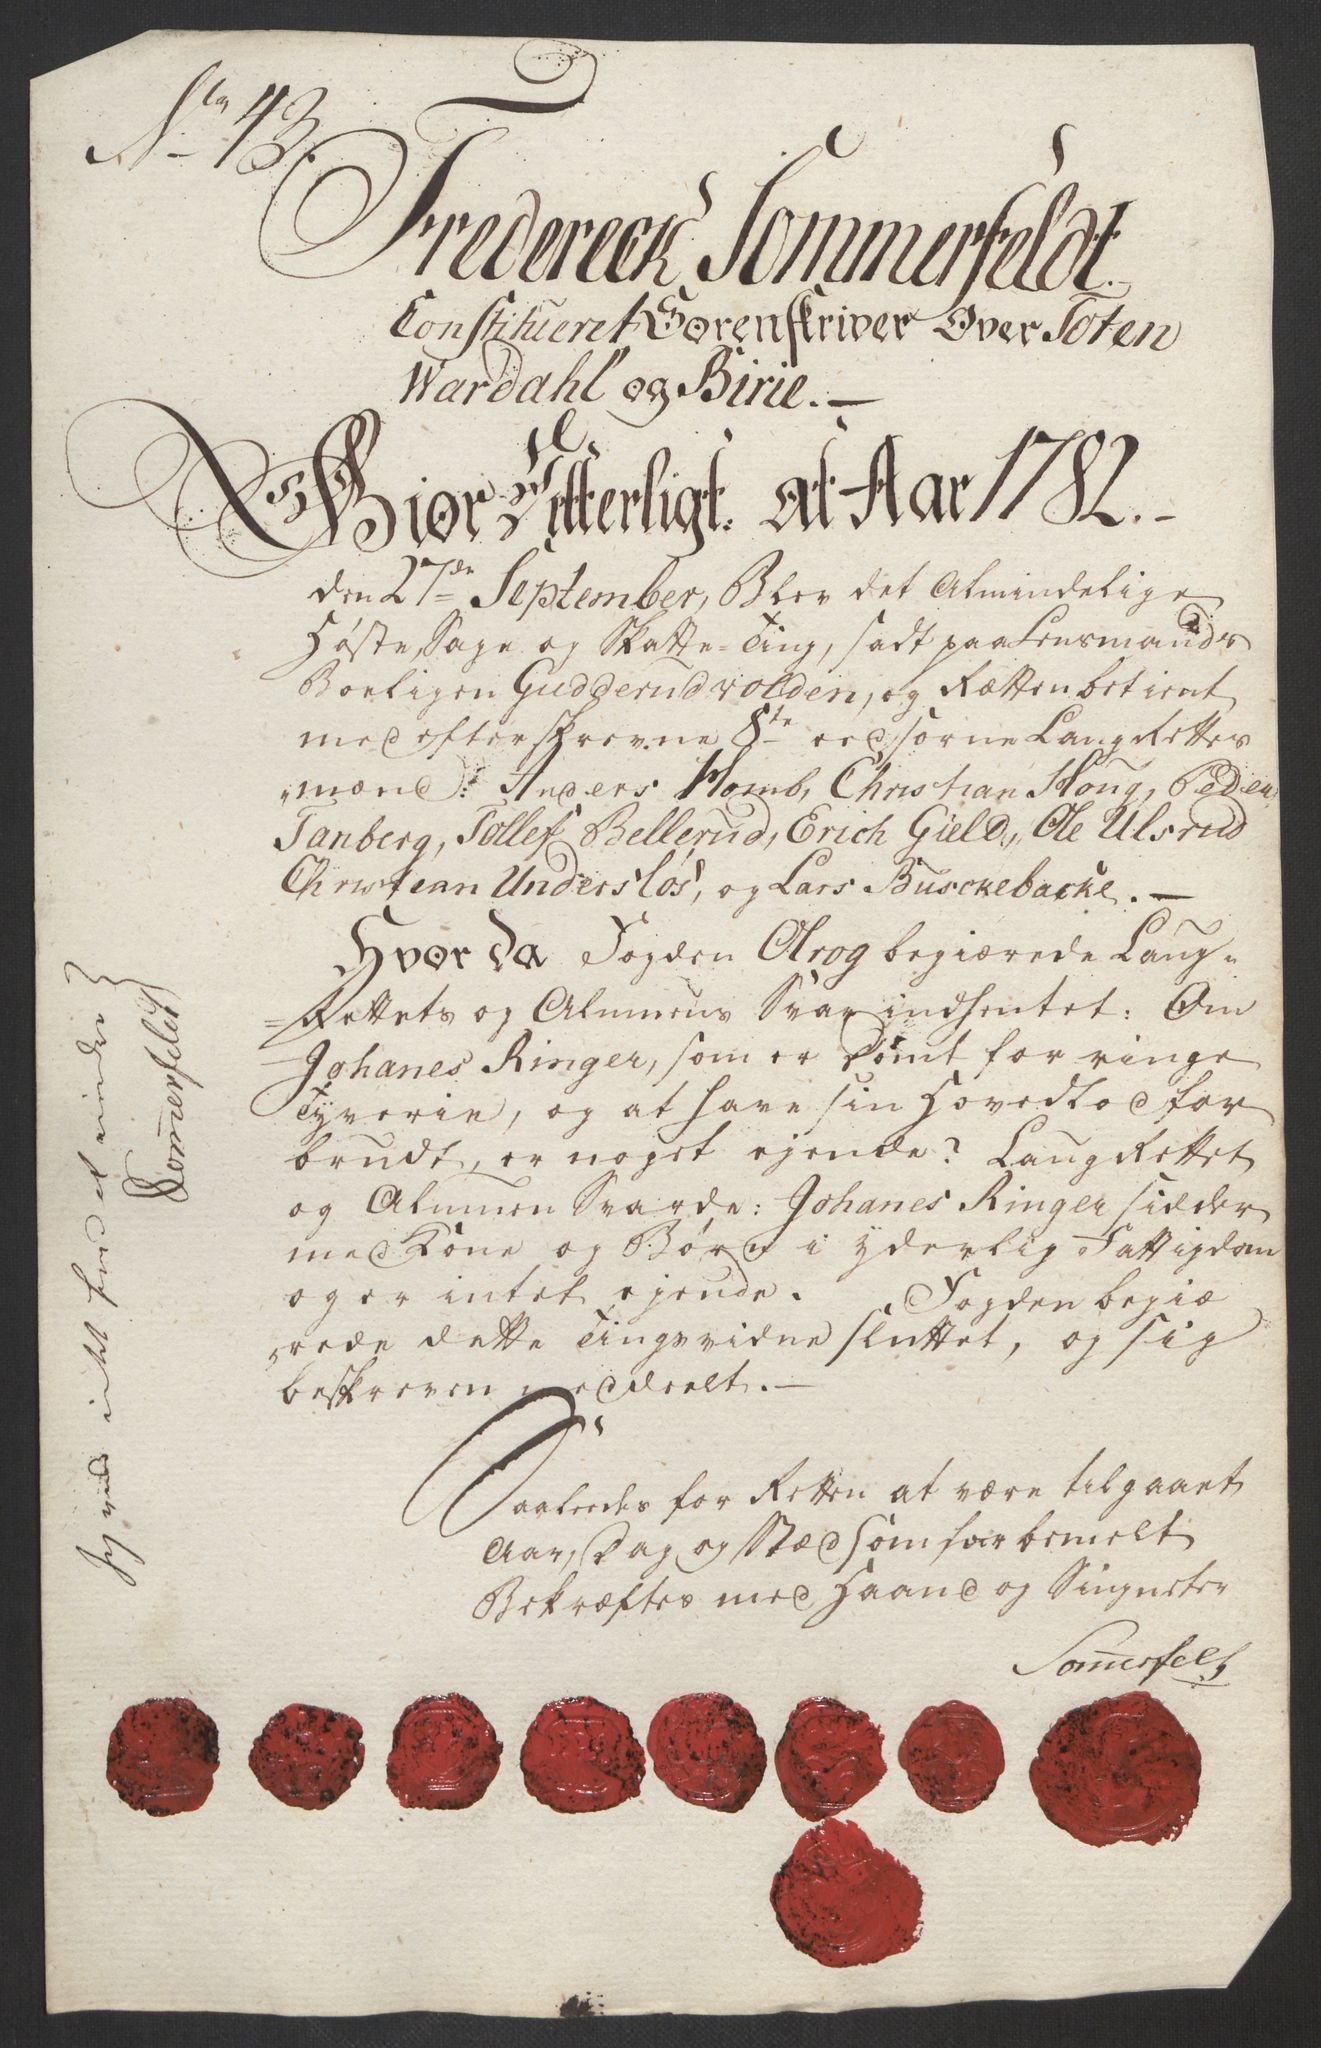 No 43.
Fredereck Sommerfeldt.
Constitueret Sorenskriver Over Toten
Wardahl og Birie. —
Giør Vitterligt. at Aar 1782. -
den 27de September, Blev det Almindelige
Høste, Sage og Skatte-Ting, sadt paa Lensmands
Boeligen Gudderudvolden, og Rætten betient
med efterskrevne 8te eedsorne LaugRettes
mænd: Anders Homb, Christian Houg, Peder
Tanberg, Tollef Bellerud, Erich Gield, Ole Ulsrud
Christean Undersløs, og Lars Busckebacke. —
Hvor da Fogden Alrog begiærede Laug-
Rettets og Almuens Svar indhentet: Om
Johanes Ringer, som er dømt for ringe
Tyverie, og at have sin Hovedlod for
brudt, er noget ejende? LaugRettet
og Almuen Svarde: Johanes Ringer sidder
med Kone og Børn i yderlig Fattigdom
og er intet ejende. Fogden begiæ
rede dette Tingsvidne sluttet, og sig
beskreven meddeelt. —
Saaleedes for Retten at være tilgaaet
Aar, Dag og Stæd som forbemelt
Bekræftes med Haand og Signeter
Somerfelt
Jeg veed intet herved at erindre
Somerfeldt